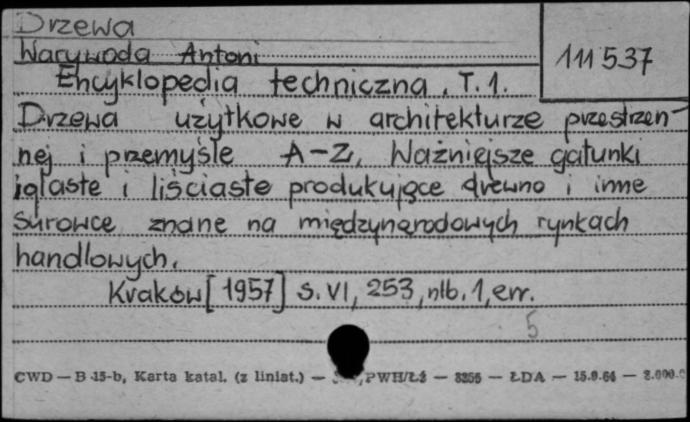 Drzewa
Warywoda Antoni
111537
Encyklopedia techniczna. T. 1.
Drzewa użytkowe w architekturze przestrzen-
nej i przemyśle A-Z. Ważniejsze gatunki
iglaste i liściaste produkujące drewno i inne
surowce znane na międzynarodowych rynkach
handlowych.
Kraków [1957] s. VI, 253, nlb. 1, err.
5
CWD — B-15-b, Karta katal. (z liniat.) — PWH/Łź — 3255 — ŁDA — 15.9.64 — 2.000.0